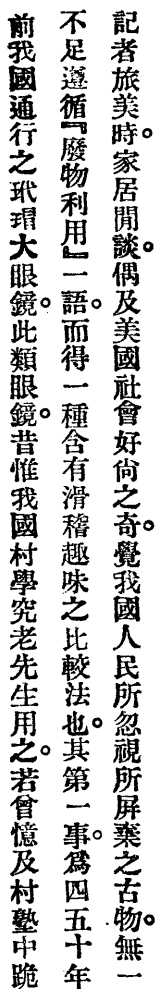 記者旅美時。家居閒談。偶及美國社會好尙之奇。覺我國人民所忽視所屏棄之古物。無一
不足遵循『廢物利用』一語。而得一種含有滑稽趣味之比較法也。其第一事。爲四五十年
前我國通行之玳瑁大眼鏡。此類眼鏡。昔惟我國村學究老先生用之。若曾憶及村塾中跪